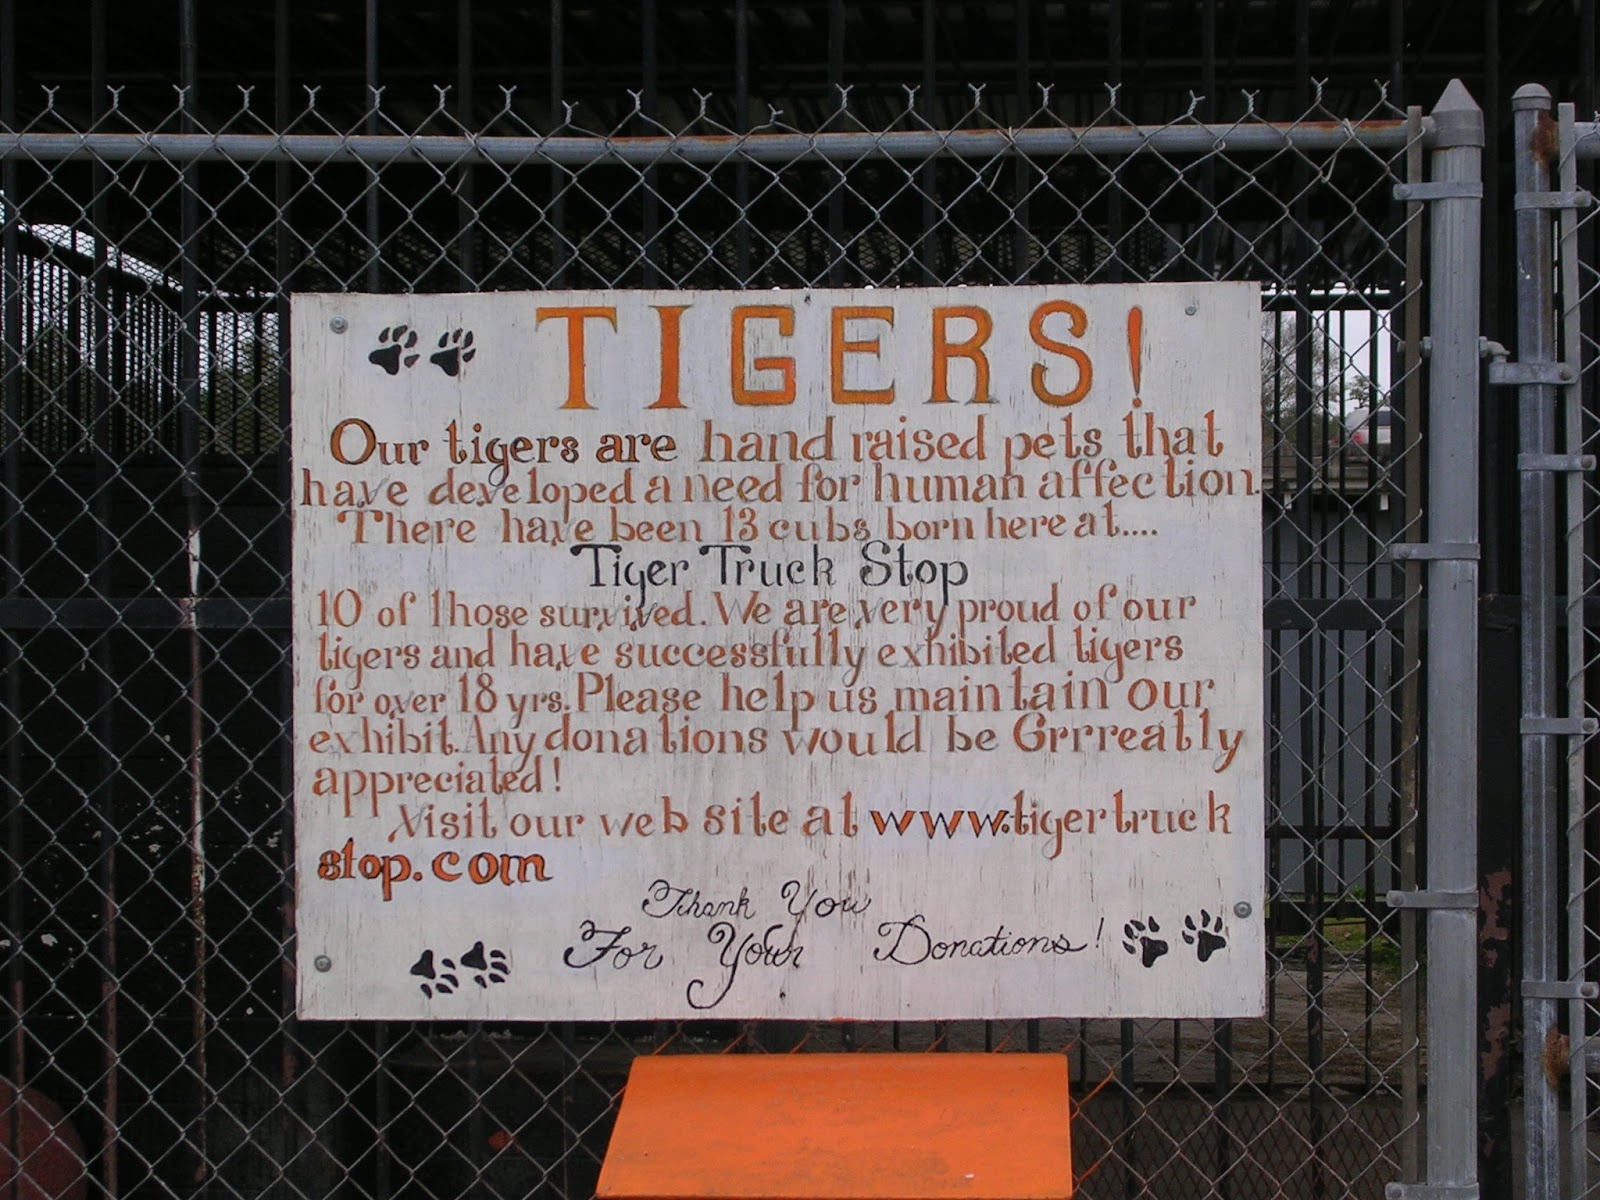 TIGERS!
Our tigers are hand raised pets that
have developed a need for human affection.
There have been 13 cubs born here at....
Tiger Truck Stop
10 of those survived. We are very proud of our
tigers and have successfully exhibited tigers
for over 18 yrs. Please help us maintain our
exhibit. Any donations would be Grrreatly
appreciated!
Visit our web site at www.tigertruck
stop.com
Thank You
For Your Donations!